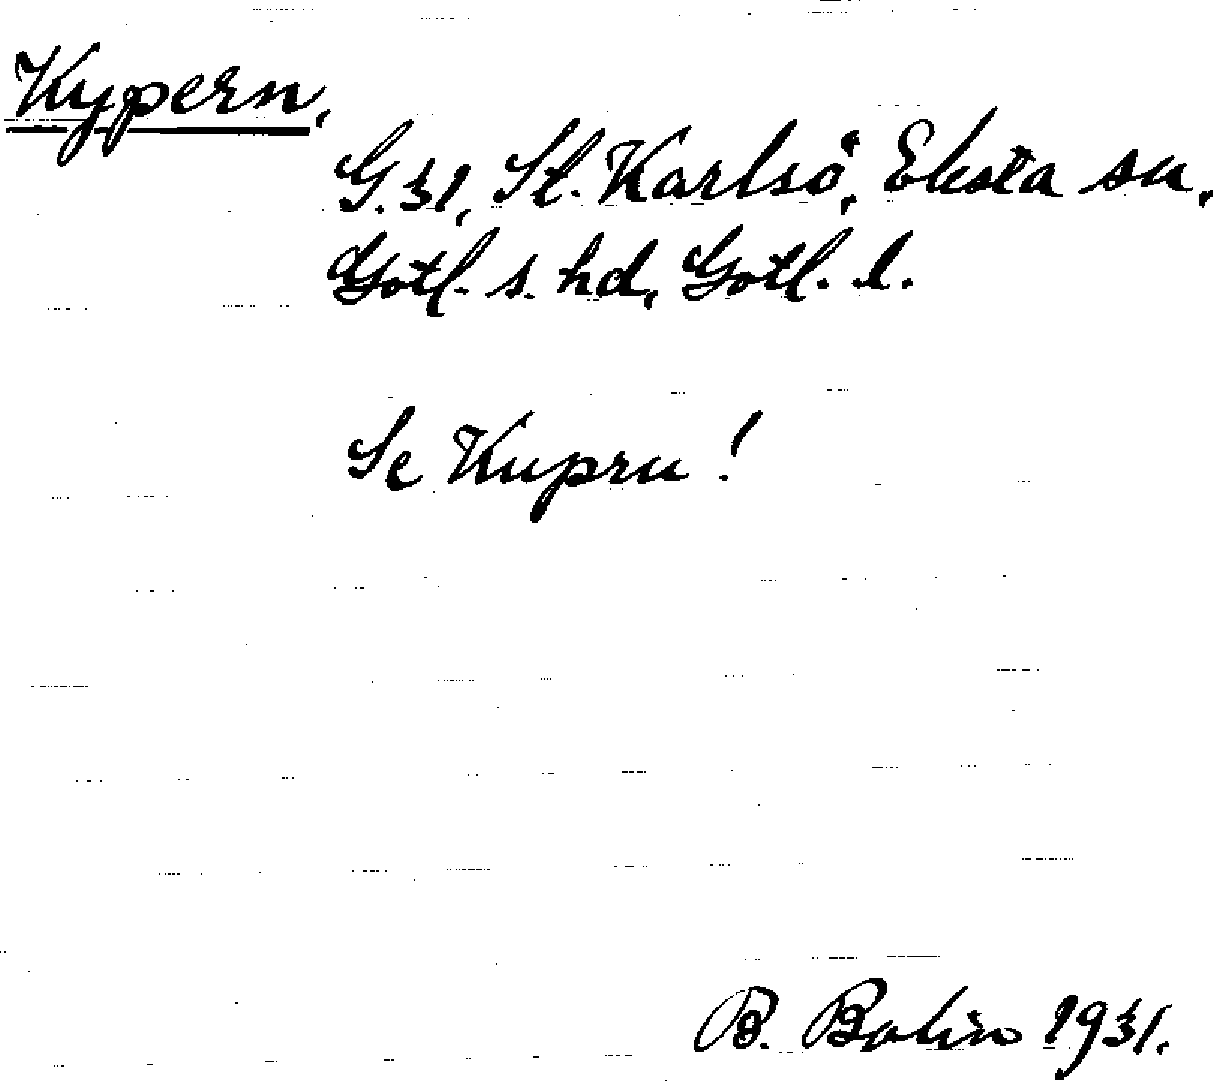 Kypern,
G. 31, St. Karlsö, Eksta sn,
Gotl. s. hd, Gotl. l.
Se Kupru!
B. Bolin 1931.